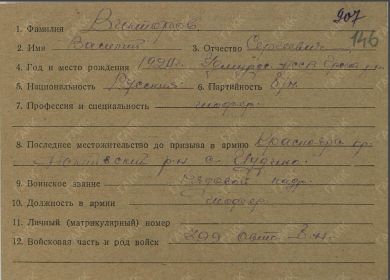 207
146
1. Фамилия Викторов
2. Имя Василий 3. Отчество Сергеевич
4. Год и место рождения
5. Национальность Русский 6. Партийность б/п
7. Профессия и специальность шофер
8. Последнее местожительство до призыва в армию
р-н с. Чудино
9. Воинское звание Рядовой
10. Должность в армии шофер
11. Личный (матрикулярный) номер
12. Войсковая часть и род войск 209 авто